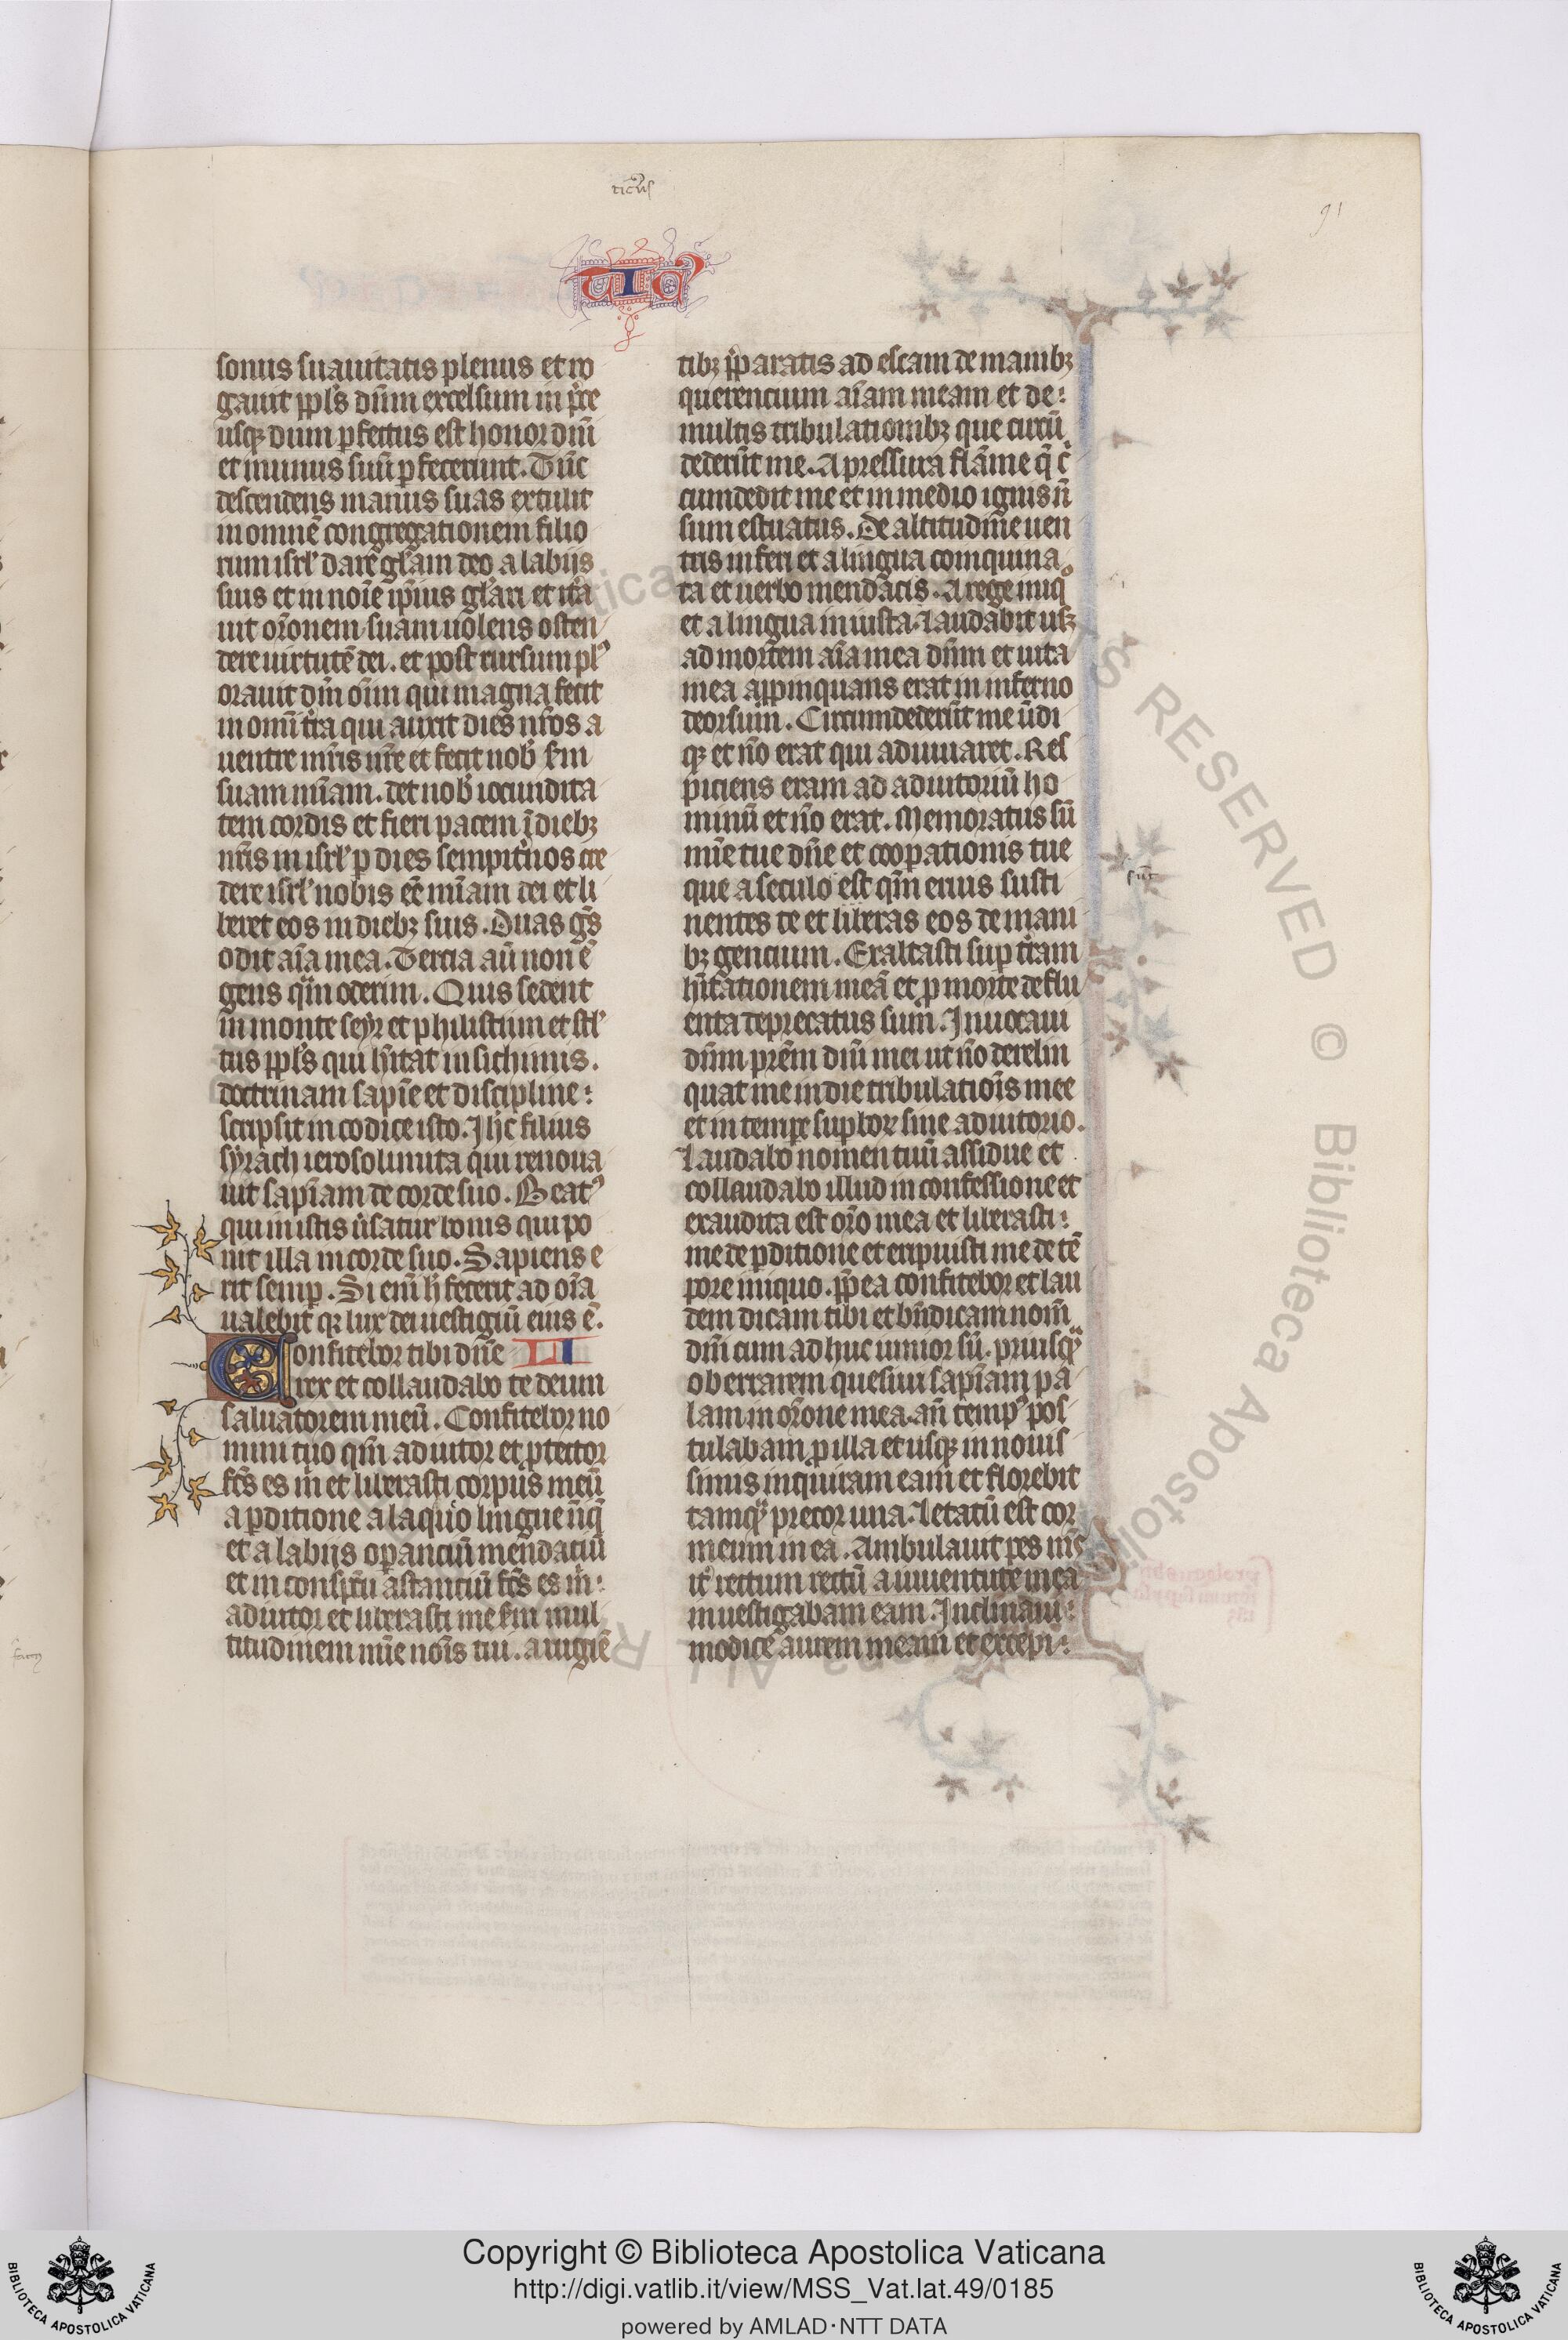 ticus
91
TIC
sonus suauitatis plenus et ro
gauit ppl's dn̄m excelsum in p̄ce
usqꝫ dum ꝑfectus est honor dn̄i
et munus suū ꝑfecerunt. Tūc
descendens manus suas extulit
in omnē congregationem filio
rum isrl' dare gl'am deo a labijs
suis et in noīe ip̄ius gl'ari et itā
uit orōnem suam uolens osten
dere uirtutē dei. et post rursum plꝰ
orauit dn̄m oīm qui magna fecit
in omī tr̄a qui auxit dies nr̄os a
uentre mr̄is nr̄e et fecit nob' sm̄
suam mīam. det nob' iocundita
tem cordis et fieri pacem ī diebꝫ
nr̄is in isrl' ꝑ dies sempit'nos cre
dere isrl' nobis eē mīam dei et li
beret eos in diebꝫ suis. Duas gn̄s
odit aīa mea. Tercia aū non ē
gens qm̄ oderim. Qui sedent
in monte seyr et philistiim et stl'
tus ppl's qui hītat in sichimis.
doctrinam sapīe et discipline:
scripsit in codice isto. Ih̄c filius
syrach ierosolimita qui renoua
uit sapīam de corde suo. Beatꝰ
qui in istis ūsatur bonis qui po
nit illa in corde suo. Sapiens e
rit semꝑ. Si enī h̄ fecerit ad oīa
ualebit qꝛ lux dei uestigiū eius ē.
Confitebor tibi dn̄e LI
rex et collaudabo te deum
saluatorem meū. Confitebor no
mini tuo qm̄ adiutor et ꝓtector
fc̄s es m̄ et liberasti corpus meū
a ꝑditione a laqueo lingue īiq̄
et a labijs oꝑanciū mendaciū
et in conspc̄u astanciū fc̄s es m̄:
adiutor et liberasti me sm̄ mul
titudinem mīe noīs tui. a rugiē
tibꝫ p̄paratis ad escam de manibꝫ
querencium aīam meam et de:
multis tribulationibꝫ que circū
dederūt me. A pressura flāme q̄ c̄
cumdedit me et in medio ignis n̄
sum estuatus. De altitudīe uen
tris inferi et a lingua coinquina
ta et uerbo mendacis. A rege iniqͦ
et a lingua iniusta. Laudabit usꝫ
ad mortem aīa mea dn̄m et uita
mea app̄inquans erat in inferno
deorsum. Circumdederūt me ūdi
qꝫ et nō erat qui adiuuaret. Res
piciens eram ad adiutoriū ho
minū et nō erat. Memoratus sū
mīe tue dn̄e et cooꝑationis tue
que a seculo est qm̄ eruis susti
sunt
nentes te et liberas eos de mani
bꝫ gencium. Exaltasti suꝑ tr̄am
hītationem meā et ꝓ morte deflu
enta deprecatus sum. Inuocaui
dn̄m prēm dn̄i mei ut nō derelin
quat me in die tribulatiōis mee
et in tempe supborꝫ sine adiutorio.
Laudabo nomen tuū assidue et
collaudabo illud in confessione et
exaudita est orō mea et liberasti:
me de ꝑditione et eripuisti me de tē
pore iniquo. ꝓp̄ea confitebor et lau
dem dicam tibi et bn̄dicam nom̄
dn̄i cum ad huc iunior sū. priusqͣ
oberrarem quesiui sapīam pa
lam in orōne mea. an̄ tempꝰ pos
tulabam ꝓ illa et usqꝫ in nouis
simis inquiram eam et florebit
tamqͣ precox uua. Letatū est cor
meum in ea. Ambulauit pes m̄s
it' rectum rectū a iuuentute mea
inuestigabam eam. Inclinaui:
modice aurem meam et excepi:
Copyright © Biblioteca Apostolica Vaticana
http://digi.vatlib.it/view/MSS_Vat.lat.49/0185
powered by AMLAD·NTT DATA